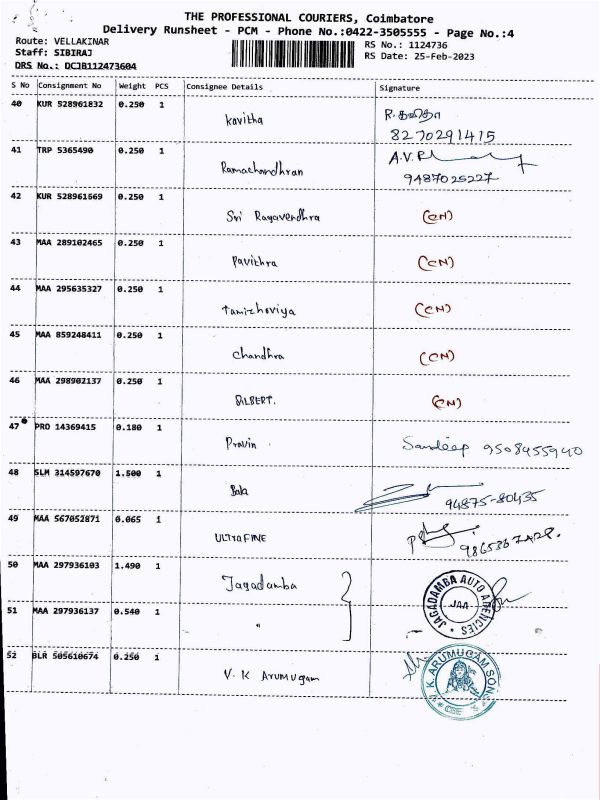 THE PROFESSIONAL COURIERS, Coimbatore
Delivery Runsheet - PCM - Phone No.:0422-3505555 - Page No.:4
Route: VELLAKINAR
RS No.: 1124736
Staff: SIBIRAJ
RS Date: 25-Feb-2023
DRS No.: DCJB112473604
S No Consignment No Weight PCS Consignee Details Signature
40 KUR 528961832 0.250 1 Kavitha R.கவிதா
8270291415
41 TRP 5365490 0.250 1 Ramachandhran A.V.R
9487025227
42 KUR 528961669 0.250 1 Sri Ragavendhra (CN)
43 MAA 289102465 0.250 1 Pavithra (CN)
44 MAA 295635327 0.250 1 Tamizhoviya (CN)
45 MAA 859248411 0.250 1 Chandhra (CN)
46 MAA 298902137 0.250 1 GILBERT. (CN)
47 PRO 14369415 0.180 1 Pravin Sandeep 9508455940
48 SLM 314597670 1.500 1 Bala 94875-80435
49 MAA 567052871 0.065 1 ULTRAFINE
50 MAA 297936103 1.490 1 Jagadamba JAGADAMBA AUTO AGENCIES
JAA
51 MAA 297936137 0.540 1 "
52 BLR 505610674 0.250 1 V. K Arumugam V.K. ARUMUGAM SONS
CBE